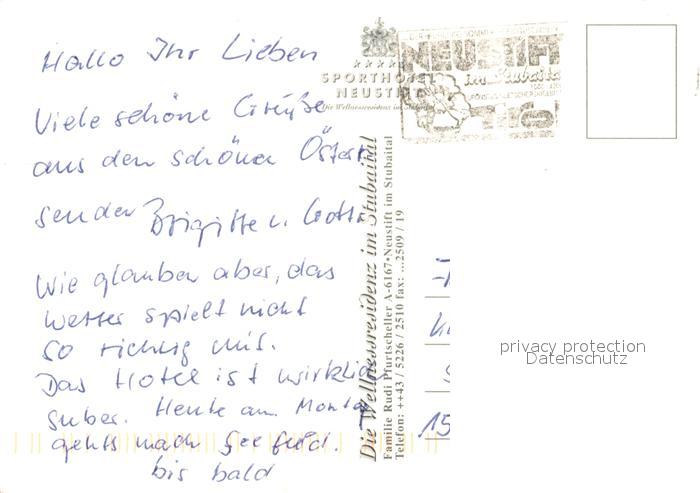 Hallo Ihr Lieben
Viele schöne Grüße
aus dem schönen Österr
senden Brigitte u. Gotta
Wir glauben aber, das
Wetter spielt nicht
so richtig mit.
Das Hotel ist wirklich
super. Heute am Montag
gehts nach Seefeld.
bis bald
★★★★
SPORTHOTEL
NEUSTIFT
Die Wellnessresidenz im Stubaital
NEUSTIFT
im Stubaital
Die Wellnessresidenz im Stubaital
Familie Rudi Pfurtscheller A-6167·Neustift im Stubaital
Telefon: ++43 / 5226 / 2510 fax: ...2509 / 19
15
privacy protection
Datenschutz